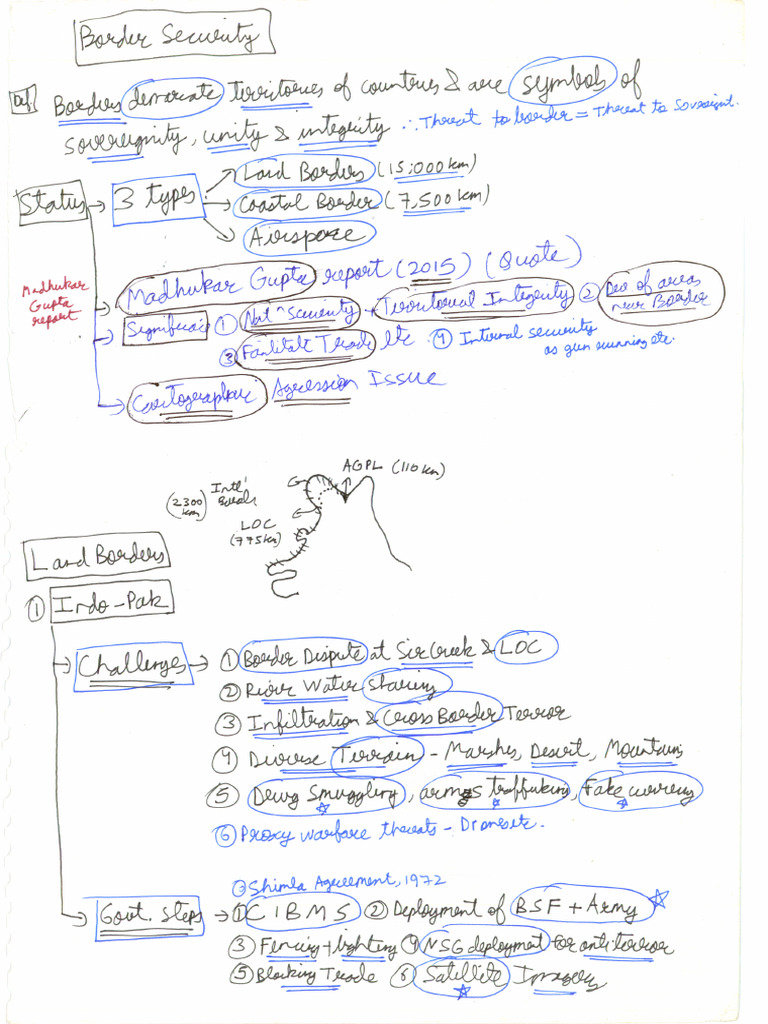 Border Security
Def. Borders demarcate territories of countries & are symbols of
sovereignity, unity & integrity ∴ Threat to border = Threat to Sovreignt.
Status → 3 types → Land Borders (15,000 km)
→ Coastal Border (7,500 km)
→ Airspace
Madhukar Gupta report
→ Madhukar Gupta report (2015) (Quote)
→ Significance ① Natn Security, Territorial Integrity ② Dev of areas near Border
③ Facilitate Trade etc ④ Internal security as gun running etc.
→ Cartographic Agression Issue
AGPL (110 km)
Intl
(2300 km)
LOC
(775 km)
Land Borders
① Indo-Pak
→ Challenges → ① Border Dispute at Sir Creek & LOC
② River Water Sharing
③ Infiltration & Cross Border Terror
④ Diverse Terrain - Marshes, Desert, Mountains
⑤ Drug Smuggling, arms traffuking, Fake currency
⑥ Proxy warfare threats - Drones etc.
Shimla Agreement, 1972
→ Govt. Steps → ① CIBMS ② Deployment of BSF + Army
③ Fencing + lighting ④ NSG deployment for anti terror
⑤ Blocking Trade ⑥ Satellite Imagery